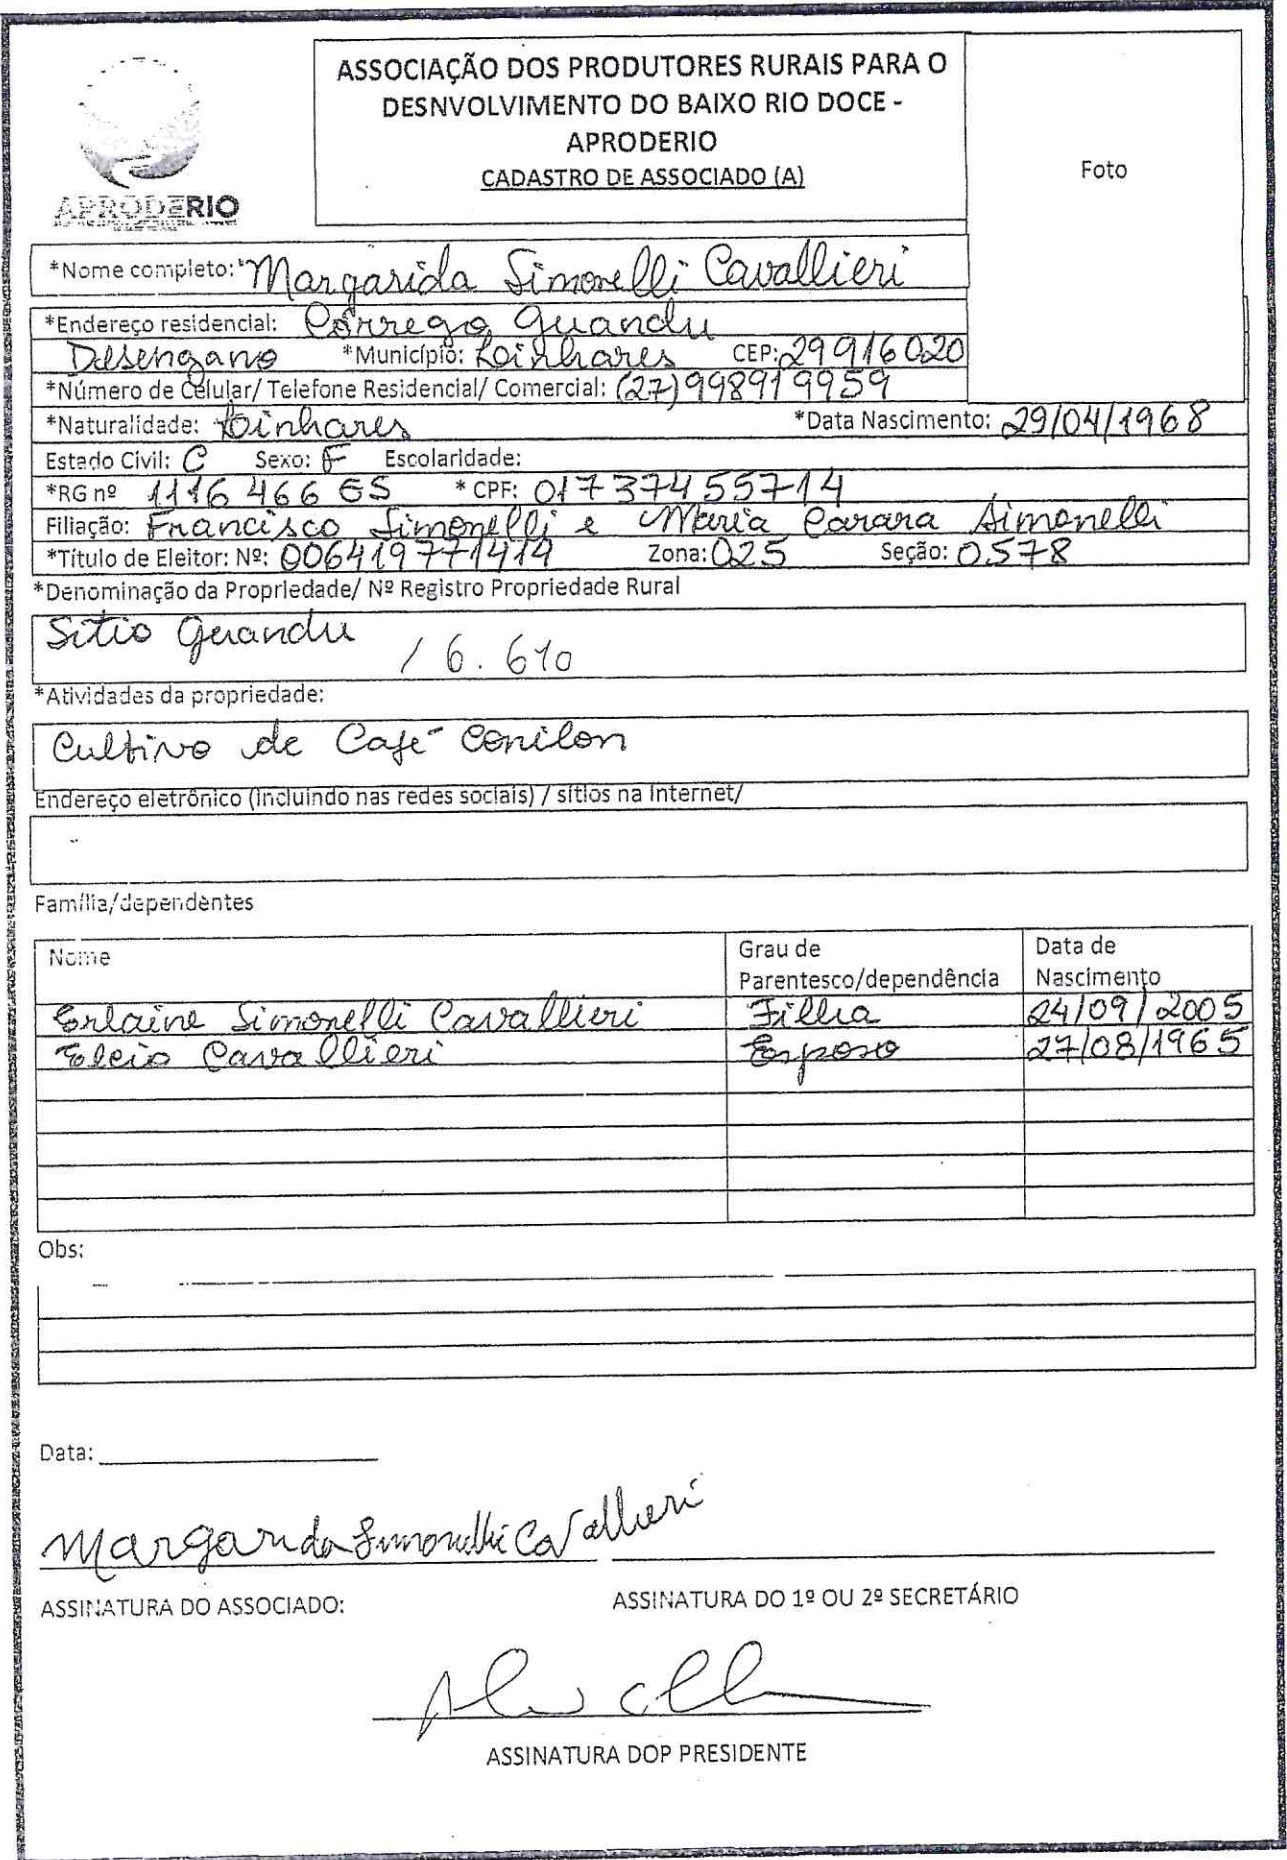 APRODERIO
ASSOCIAÇÃO DOS PRODUTORES RURAIS PARA O
DESNVOLVIMENTO DO BAIXO RIO DOCE -
APRODERIO
CADASTRO DE ASSOCIADO (A)
Foto
*Nome completo: Margarida Simonelli Cavallieri
*Endereço residencial: Córrego Guandu
Desengano *Município: Linhares CEP: 29916020
*Número de Celular/ Telefone Residencial/ Comercial: (27)998919959
*Naturalidade: Linhares *Data Nascimento: 29/04/1968
Estado Civil: C Sexo: F Escolaridade:
*RG nº 1116 466 ES *CPF: 01737455714
Filiação: Francisco Simonelli e Maria Carara Simonelli
*Título de Eleitor: Nº: 006419771414 Zona: 025 Seção: 0578
*Denominação da Propriedade/ Nº Registro Propriedade Rural
Sitio Guandu / 6.610
*Atividades da propriedade:
Cultivo de Café Conilon
Endereço eletrônico (incluindo nas redes sociais) / sítios na Internet/
Família/dependentes
Nome Grau de Parentesco/dependência Data de Nascimento
Erlaine Simonelli Cavallieri Fillia 24/09/2005
Elcio Cavallieri Esposo 27/08/1965
Obs:
Data:
Margarida Simonelli Cavallieri
ASSINATURA DO ASSOCIADO: ASSINATURA DO 1º OU 2º SECRETÁRIO
ASSINATURA DOP PRESIDENTE